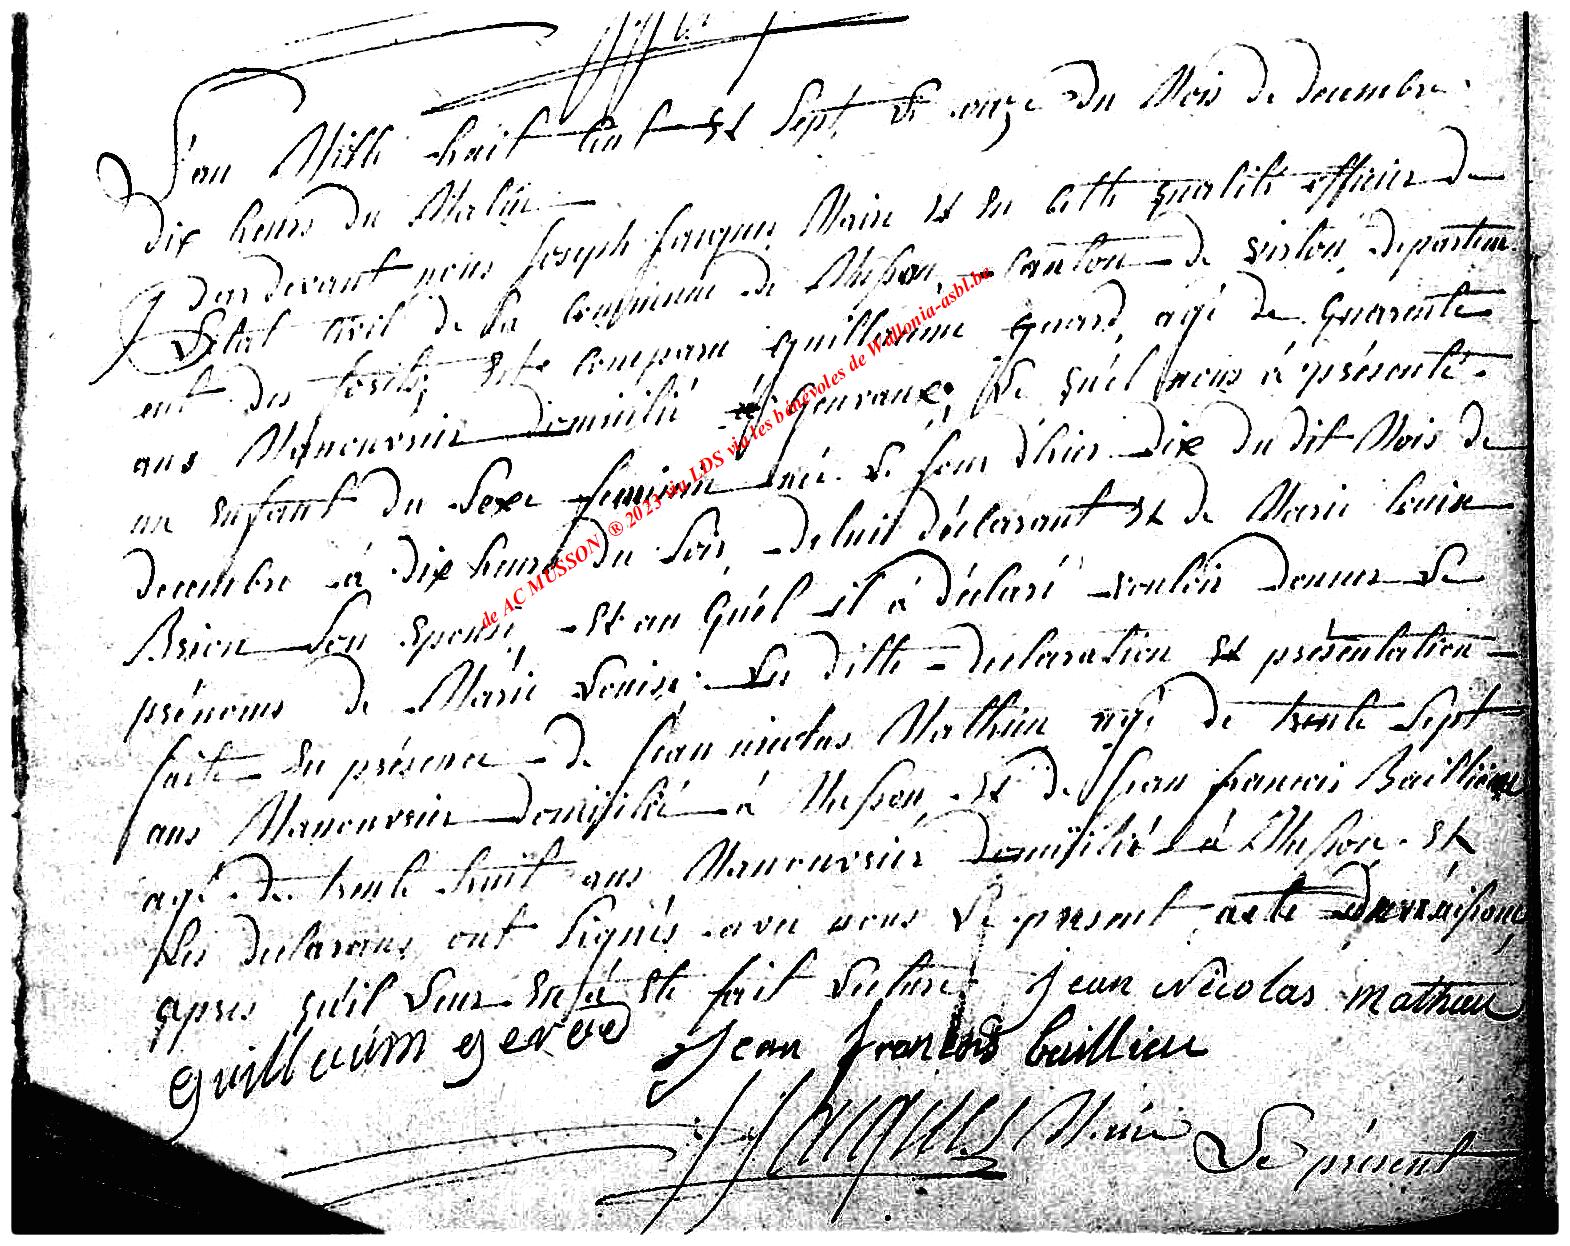 L'an Mille huit Cent et Sept le onze du Mois de decembre
dix heurs du Matin
Par devant nous Joseph Jacques Maire et en cette qualité officier de
L'etat Civil de la Commune de Musson, Canton de virton, departem
ent des forets, est comparu Guillaume Guard, agé de quarente
ans Manouvrier domicilié à Gennvaux, le quel nous à présenté
un enfant du Sexe feminin née le Jour d'hier dix du dit Mois de
decembre à dix heurs du Soir, de luit déclarant et de Marie louise
Brion Son epouse, et au quel il à déclaré vouloir donner le
prénoms de Marie Louise; les ditte declaration et présentation
faite en présence de Jean nicolas Mathieu agé de trente Sept
ans Manouvrier domissilié à Musson, et de Jean francois Baillieux
agé de trente huit ans Manouvrier domissilié à Musson et
les declarans ont Signés avec nous le present acte de naissance
apres qu'il leur en à ete fait lecture Jean Nicolas Mathieu
guillaum gerod Jean francois baillieu
J Jacques Maire Le présent
de AC MUSSON ® 2023 via LDS via les bénévoles de Wallonia-asbl.be